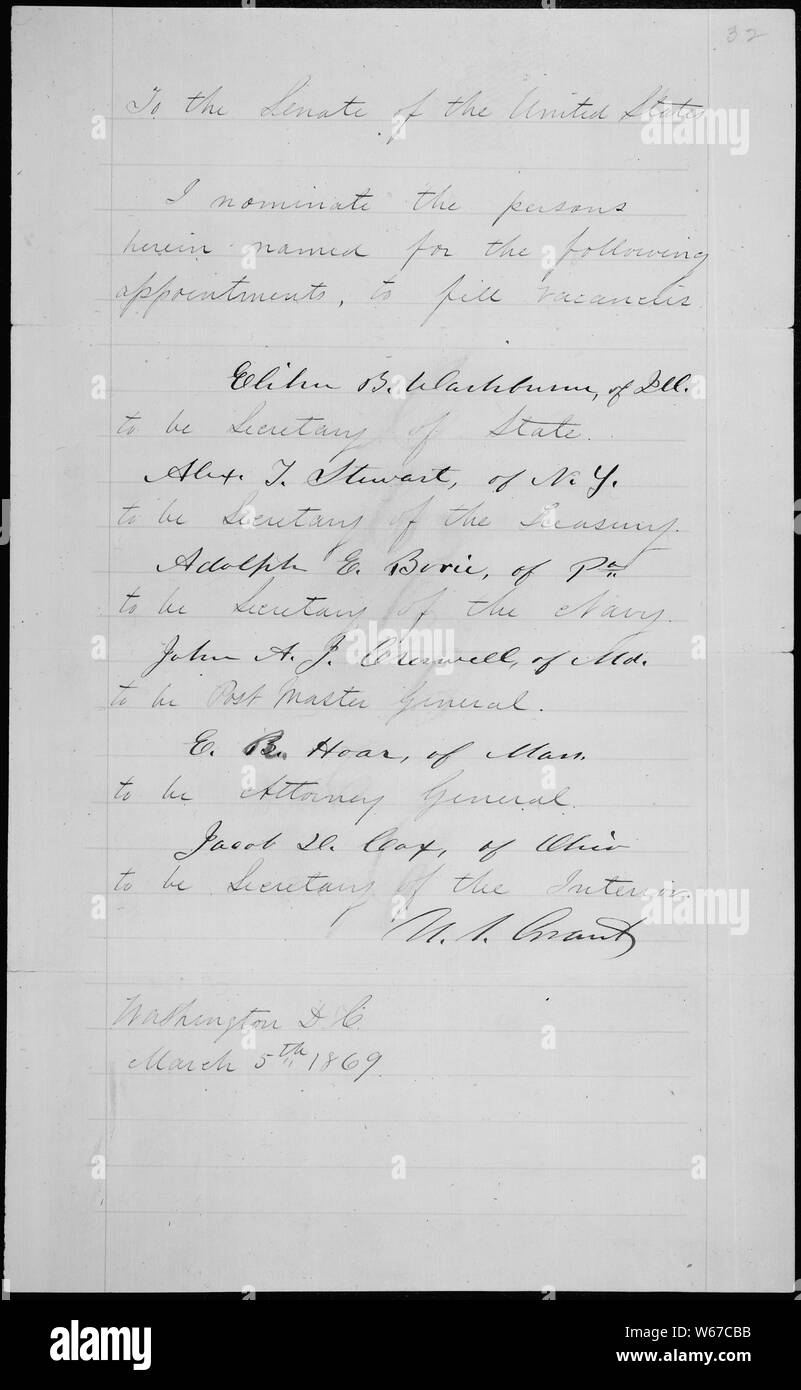 32
To the Senate of the United States
I nominate the persons
herein named for the following
appointments, to fill vacancies.
Elihu B. Washburne, of Ill.
to be Secretary of State.
Alex. T. Stewart, of N.Y.
to be Secretary of the Treasury.
Adolph E. Borie, of Pa
to be Secretary of the Navy.
John A. J. Creswell, of Md.
to be Post Master General.
E. R. Hoar, of Mass.
to be Attorney General.
Jacob D. Cox, of Ohio
to be Secretary of the Interior.
U. S. Grant
Washington D. C.
March 5th 1869.
alamy
Image ID: W67CBB
www.alamy.com